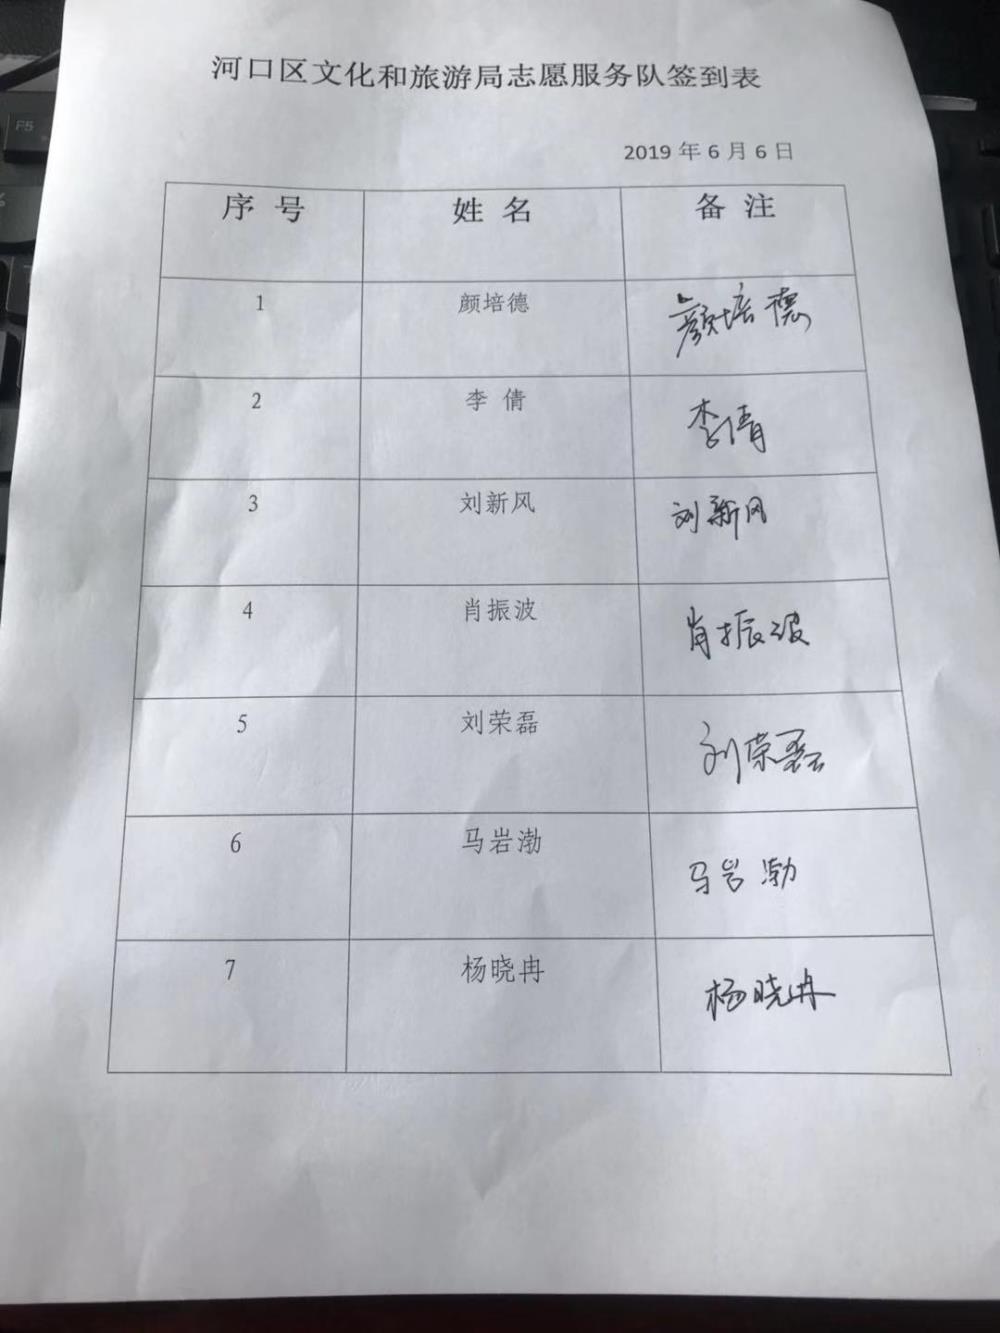 河口区文化和旅游局志愿服务队签到表
2019 年 6 月 6 日
序 号 姓 名 备 注
1 颜培德 颜培德
2 李 倩 李倩
3 刘新风 刘新风
4 肖振波 肖振波
5 刘荣磊 刘荣磊
6 马岩渤 马岩渤
7 杨晓冉 杨晓冉
F5